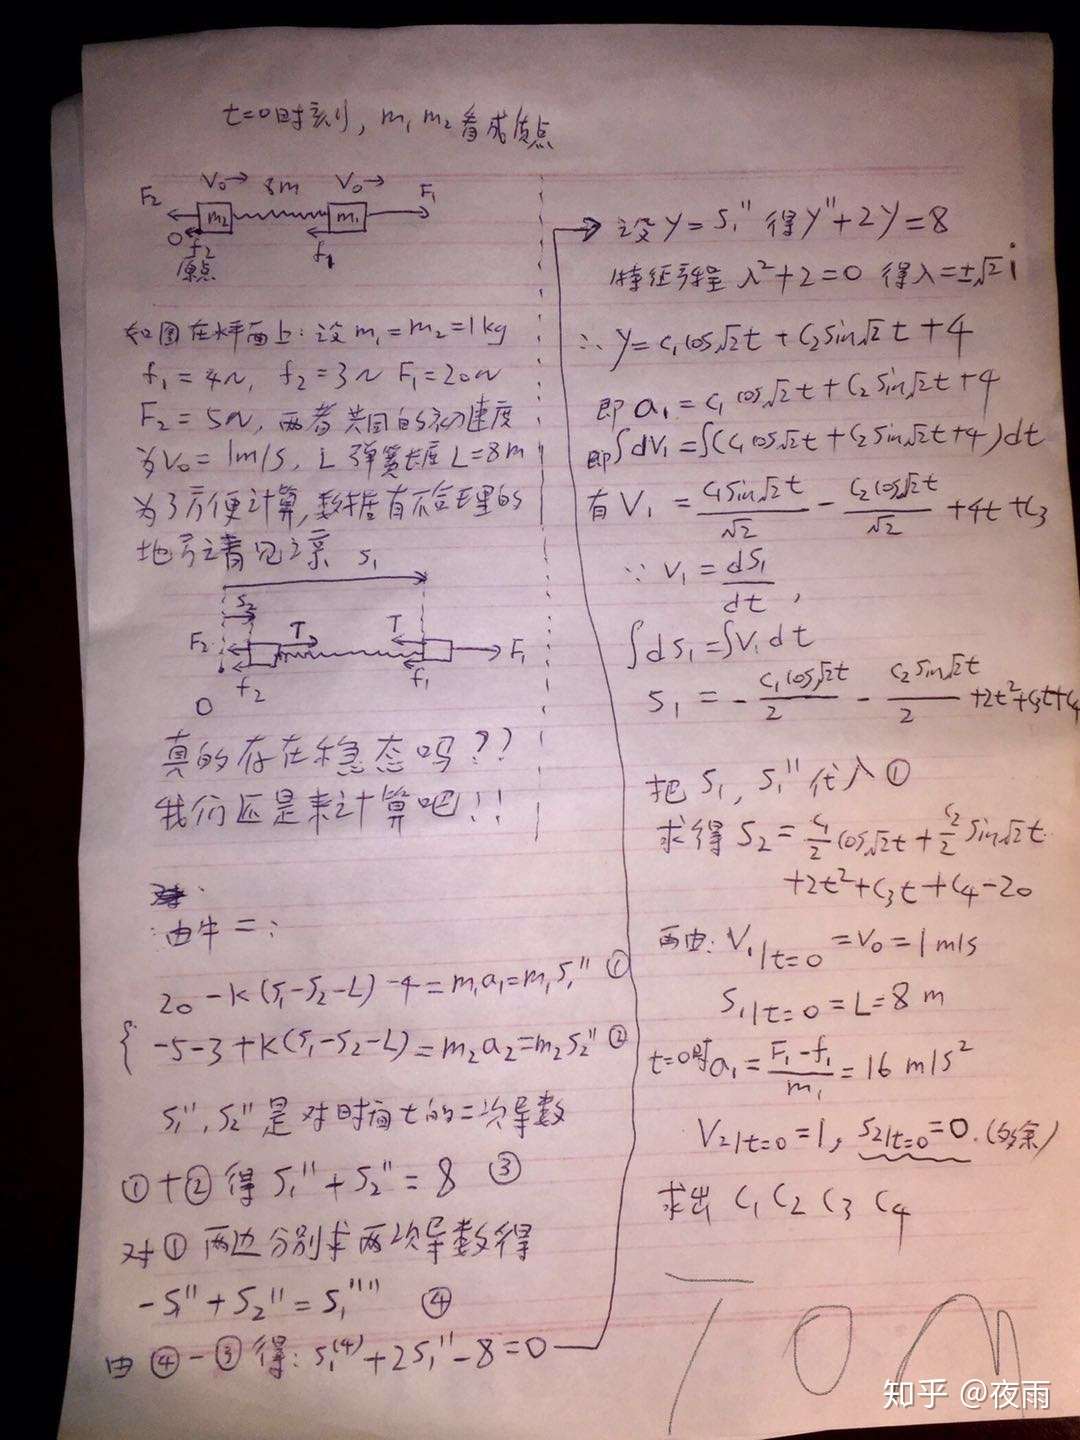 t=0时刻, m₁ m₂看成质点
V₀→ 8m V₀→
F₂ m₂ m₁ F₁
O f₂ f₁
原点
如图在水平面上:设m₁=m₂=1kg
f₁=4N, f₂=3N F₁=20N
F₂=5N, 两者共同的初速度
为V₀=1m/s, L弹簧长度L=8m
为了方便计算,数据有不合理的
地方请见谅
S₁
S₂
F₂ T T F₁
f₂ f₁
O
真的存在稳态吗??
我们还是来计算吧!!
由牛二:
20-k(S₁-S₂-L)-4=m₁a₁=m₁S₁'' ①
-5-3+k(S₁-S₂-L)=m₂a₂=m₂S₂'' ②
S₁'', S₂''是对时间t的二次导数
①+②得 S₁''+S₂''=8 ③
对①两边分别求两次导数得
-S₁''+S₂''=S₁'''' ④
由④-③得: S₁⁽⁴⁾+2S₁''-8=0
设y=S₁'' 得y''+2y=8
特征方程 λ²+2=0 得λ=±√2 i
∴ y=C₁cos√2t+C₂sin√2t+4
即 a₁=C₁cos√2t+C₂sin√2t+4
即∫dV₁=∫(C₁cos√2t+C₂sin√2t+4)dt
有V₁=C₁sin√2t/√2 - C₂cos√2t/√2 +4t+C₃
∵ V₁=dS₁/dt,
∫dS₁=∫V₁dt
S₁=-C₁cos√2t/2 - C₂sin√2t/2 +2t²+C₃t+C₄
把S₁, S₁''代入①
求得S₂=C₁/2 cos√2t+C₂/2 sin√2t
+2t²+C₃t+C₄-20
再由: V₁|t=0 =V₀=1m/s
S₁|t=0=L=8m
t=0时a₁=F₁-f₁/m₁=16m/s²
V₂|t=0=1, S₂|t=0=0.(多余)
求出 C₁ C₂ C₃ C₄
Tom
知乎 @夜雨